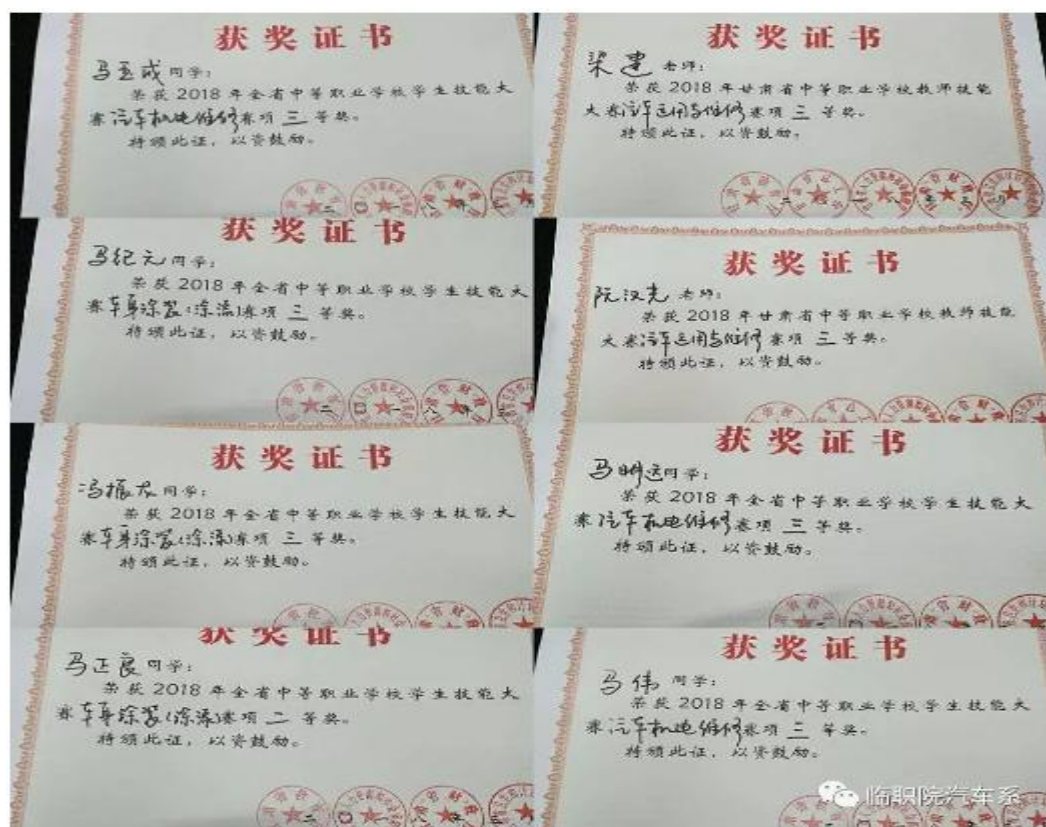 获奖证书
马玉成同学：
荣获2018年全省中等职业学校学生技能大
赛汽车机电维修赛项三等奖。
特颁此证，以资鼓励。
获奖证书
梁建老师：
荣获2018年甘肃省中等职业学校教师技能
大赛汽车运用与维修赛项三等奖。
特颁此证，以资鼓励。
获奖证书
马纪元同学：
荣获2018年全省中等职业学校学生技能大
赛车身涂装(涂漆)赛项三等奖。
特颁此证，以资鼓励。
二〇一八年
获奖证书
阮汉先老师：
荣获2018年甘肃省中等职业学校教师技能
大赛汽车运用与维修赛项三等奖。
特颁此证，以资鼓励。
获奖证书
冯振龙同学：
荣获2018年全省中等职业学校学生技能大
赛车身涂装(涂漆)赛项三等奖。
特颁此证，以资鼓励。
获奖证书
马明远同学：
荣获2018年全省中等职业学校学生技能大
赛汽车机电维修赛项三等奖。
特颁此证，以资鼓励。
获奖证书
马正良同学：
荣获2018年全省中等职业学校学生技能大
赛车身涂装(涂漆)赛项二等奖。
特颁此证，以资鼓励。
获奖证书
马伟同学：
荣获2018年全省中等职业学校学生技能大
赛汽车机电维修赛项三等奖。
特颁此证，以资鼓励。
临职院汽车系